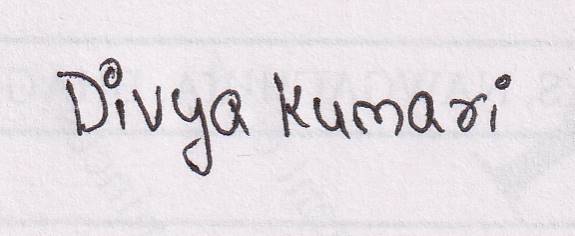 Divya Kumari